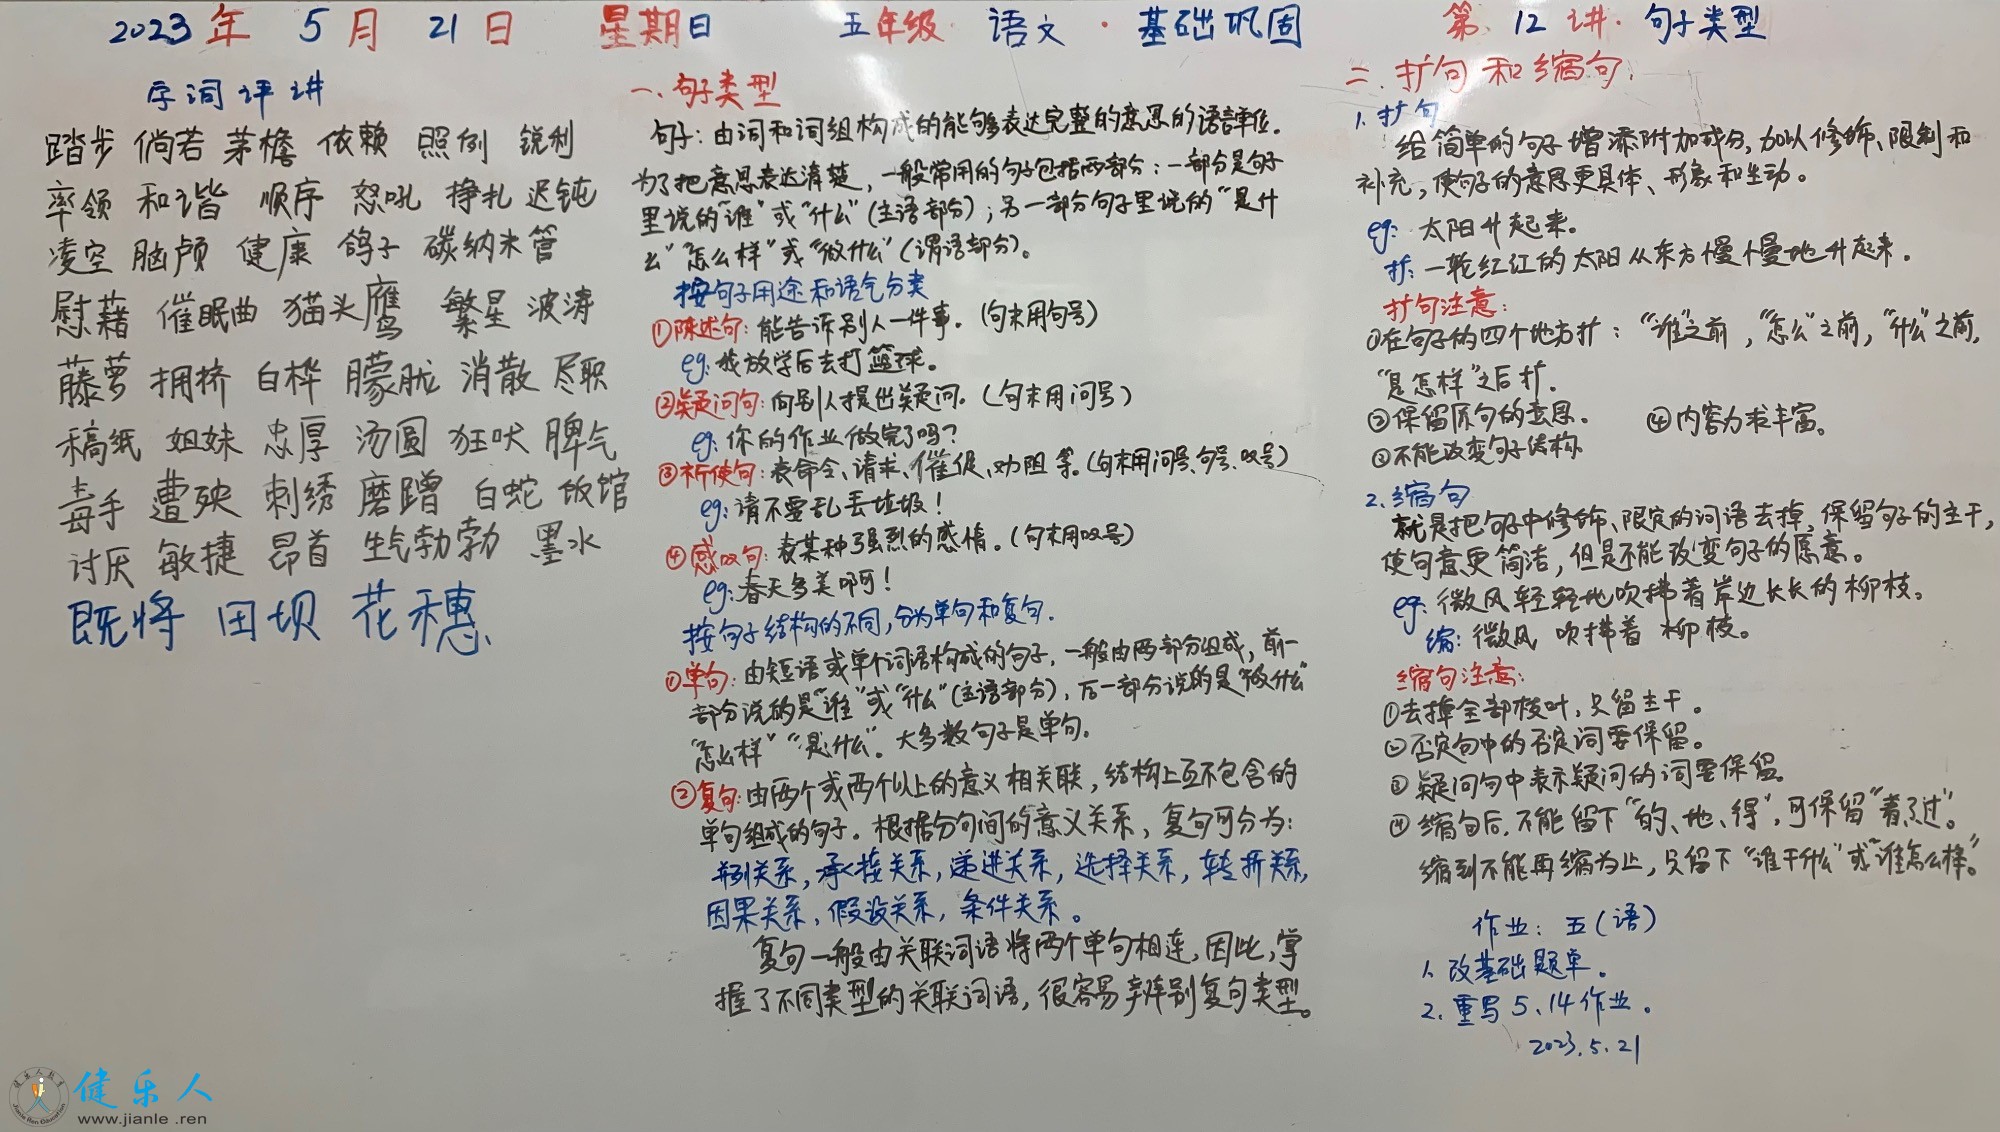 2023年 5月 21日 星期日 五年级·语文·基础巩固 第12讲·句子类型
字词评讲
踏步 倘若 茅檐 依赖 照例 锐利
率领 和谐 顺序 怒吼 挣扎 迟钝
凌空 脑颅 健康 鸽子 碳纳米管
慰藉 催眠曲 猫头鹰 繁星 波涛
藤萝 拥挤 白桦 朦胧 消散 尽职
稿纸 姐妹 忠厚 汤圆 狂吠 脾气
毒手 遭殃 刺绣 磨蹭 白蛇 饭馆
讨厌 敏捷 昂首 生气勃勃 墨水
既将 田坝 花穗
一、句子类型
句子:由词和词组构成的能够表达完整的意思的语言单位。
为了把意思表达清楚,一般常用的句子包括两部分:一部分是句子
里说的"谁"或"什么"(主语部分);另一部分句子里说的"是什
么""怎么样"或"做什么"(谓语部分)。
按句子用途和语气分类
①陈述句:能告诉别人一件事。(句末用句号)
eg:我放学后去打篮球。
②疑问句:向别人提出疑问。(句末用问号)
eg:你的作业做完了吗?
③祈使句:表命令、请求、催促、劝阻等。(句末用问号、句号、叹号)
eg:请不要乱丢垃圾!
④感叹句:表某种强烈的感情。(句末用叹号)
eg:春天多美啊!
按句子结构的不同,分为单句和复句.
①单句:由短语或单个词语构成的句子,一般由两部分组成,前一
部分说的是"谁"或"什么"(主语部分),后一部分说的是"做什么"
"怎么样""是什么"。大多数句子是单句。
②复句:由两个或两个以上的意义相关联,结构上互不包含的
单句组成的句子。根据分句间的意义关系,复句可分为:
并列关系,承接关系,递进关系,选择关系,转折关系,
因果关系,假设关系,条件关系。
复句一般由关联词语将两个单句相连,因此,掌
握了不同类型的关联词语,很容易辨别复句类型。
二.扩句和缩句.
1.扩句
给简单的句子增添附加成分,加以修饰、限制和
补充,使句子的意思更具体、形象和生动。
eg:太阳升起来。
扩:一轮红红的太阳从东方慢慢地升起来。
扩句注意:
①在句子的四个地方扩:"谁"之前,"怎么"之前,"什么"之前,
"是怎样"之后扩.
②保留原句的意思。 ④内容力求丰富。
③不能改变句子结构
2.缩句
就是把句子中修饰、限定的词语去掉,保留句子的主干,
使句意更简洁,但是不能改变句子的原意。
eg:微风轻轻地吹拂着岸边长长的柳枝。
缩:微风吹拂着柳枝。
缩句注意:
①去掉全部枝叶,只留主干。
②否定句中的否定词要保留。
③疑问句中表示疑问的词要保留。
④缩句后,不能留下"的、地、得",可保留"着了过"。
缩到不能再缩为止,只留下"谁干什么"或"谁怎么样"。
作业:五(语)
1.改基础题单。
2.重写5.14作业。
2023.5.21
健乐人
www.jianle.ren